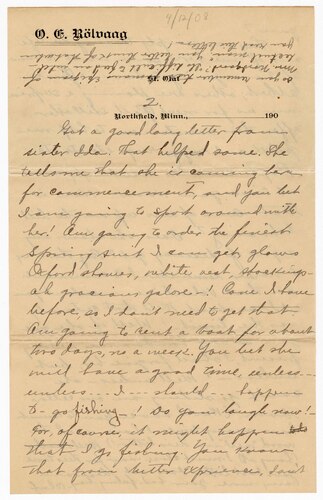 4/12/08
O. E. Rölvaag
St. Olaf
2
Northfield, Minn., 190
Got a good long letter from
sister Ida. That helped some. She
tells me that she is coming too
for commencement, and you bet
I am going to sport around with
her! Am going to order the finest
Spring suit I can get, gloves
Oxford shoes, white vest, stockings-
ah gracious galore! Cane I have
before, so I don't need to get that
Am going to rent a boat for about
two days, no a week. You bet she
will have a good time, unless —
unless ... I ... should ... happen
to go fishing—! Do you laugh now!
For, of course, it might happen
that I go fishing. You know
that from bitter experience, don't